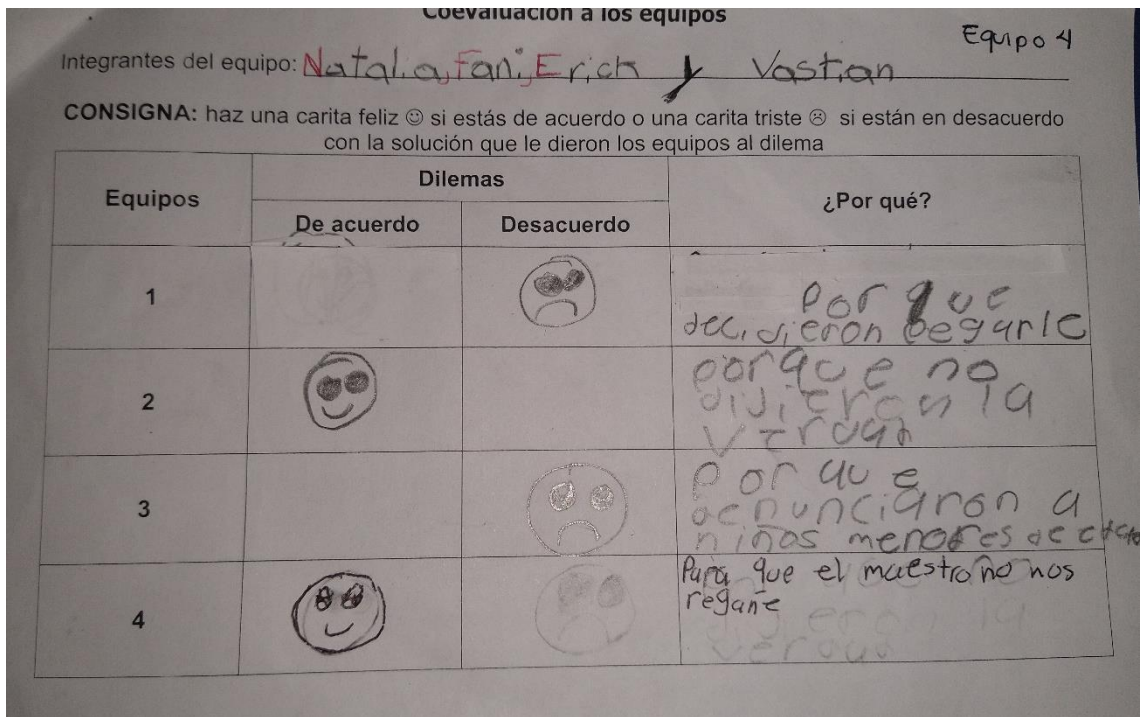 Coevaluación a los equipos
Equipo 4
Integrantes del equipo: Natalia, Fani, Erick y Vastian
CONSIGNA: haz una carita feliz ☺ si estás de acuerdo o una carita triste ☹ si están en desacuerdo
con la solución que le dieron los equipos al dilema
Equipos
Dilemas
¿Por qué?
De acuerdo
Desacuerdo
1
Por que
decidieron pegarle
2
porque no
dijieron la
verdad
3
Por que
denunciaron a
niños menores de
4
Para que el maestro no nos
regañe
verdad